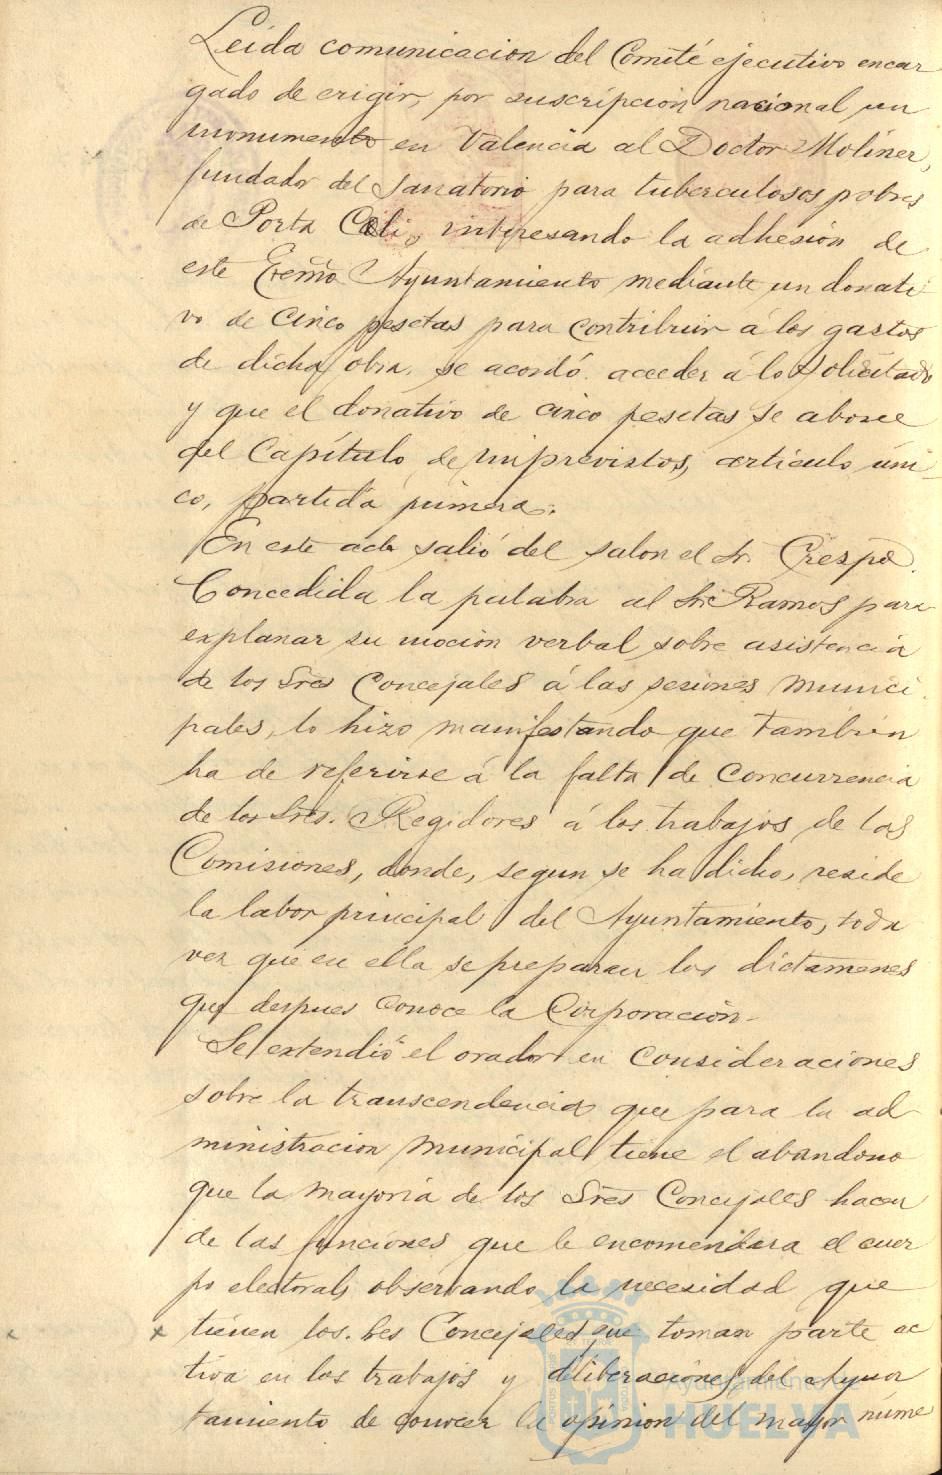 Leida comunicacion del Comité ejecutivo encar
gado de erigir, por suscripcion nacional un
monumento en Valencia al Doctor Moliner,
fundador del Sanatorio para tuberculosos pobres
de Porta Celi, interesando la adhesion de
este Excmo Ayuntamiento mediante un donati
vo de cinco pesetas para contribuir á los gastos
de dicha obra, se acordó acceder á lo solicitado
y que el donativo de cinco pesetas se abone
del Capítulo de imprevistos, artículo úni
co, partida primera.
En este acto salió del salon el Sr. Crespo.
Concedida la palabra al Sr. Ramos para
explanar su mocion verbal sobre asistencia
de los Sres Concejales á las sesiones munici
pales, lo hizo manifestando que tambien
ha de referirse á la falta de concurrencia
de los Sres. Regidores á los trabajos de las
Comisiones, donde, segun se ha dicho, reside
la labor principal del Ayuntamiento, toda
vez que en ella se preparan los dictamenes
que despues conoce la Corporacion.
Se extendió el orador en consideraciones
sobre la transcendencia que para la ad
ministracion municipal tiene el abandono
que la mayoria de los Sres Concejales hacen
de las funciones que le encomendara el cuer
po electoral, observando la necesidad que
tienen los Sres Concejales que toman parte ac
tiva en los trabajos y deliberaciones del Ayun
tamiento de conocer la opinion del mayor núme
Ayuntamiento de
HUELVA